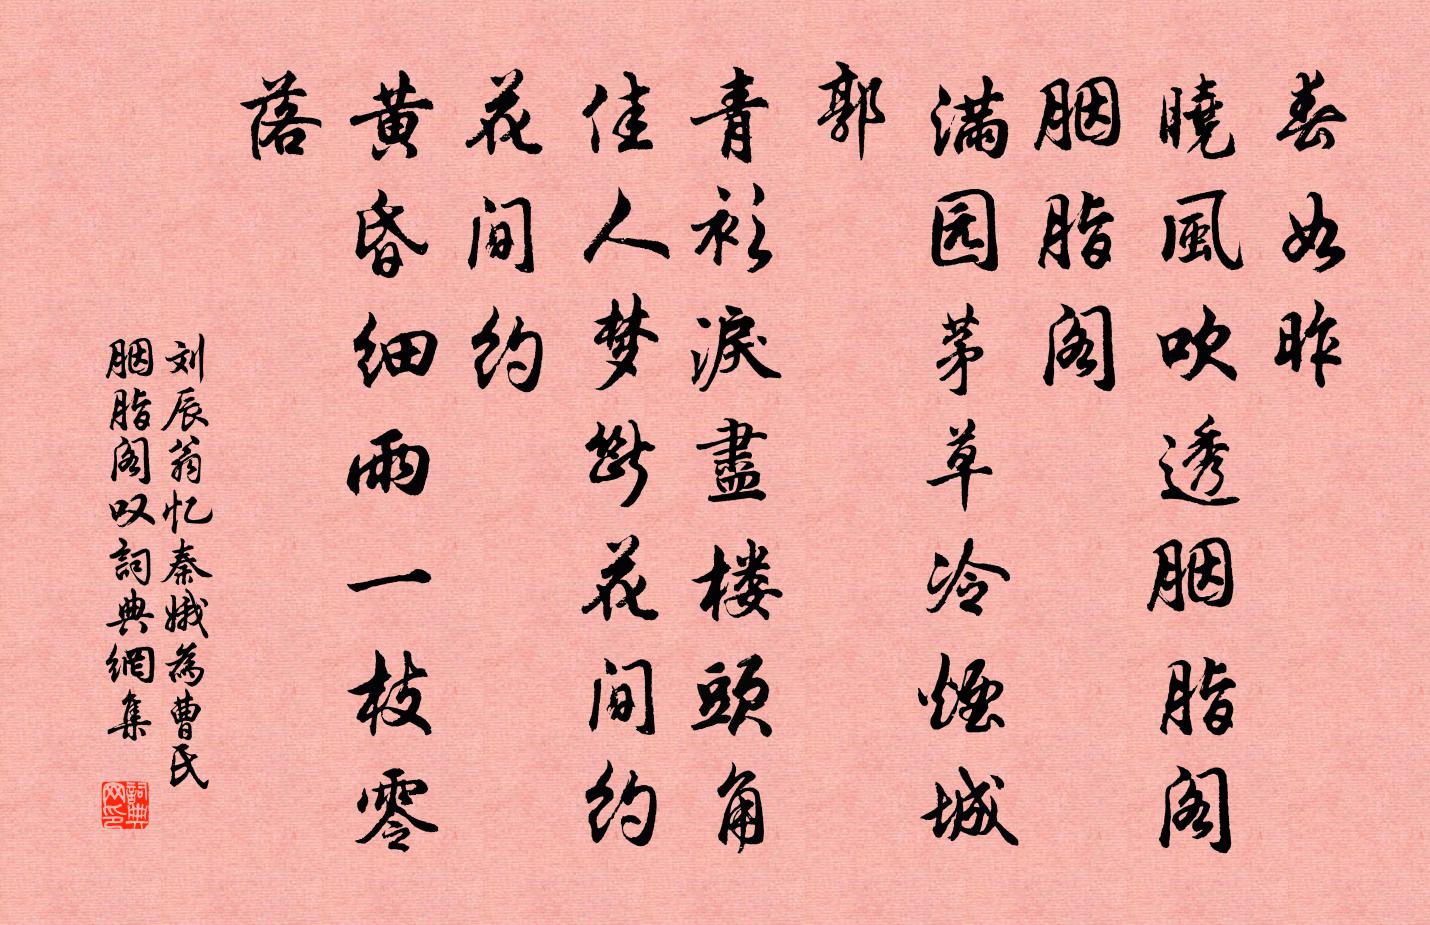 春如昨
曉風吹透胭脂阁
胭脂阁
满园茅草冷煙城
郭
青衫淚盡楼頭角
佳人梦断花间约
花间约
黄昏细雨一枝零
落
刘辰翁忆秦娥為曹氏
胭脂阁叹詞典網集
詞典
网印